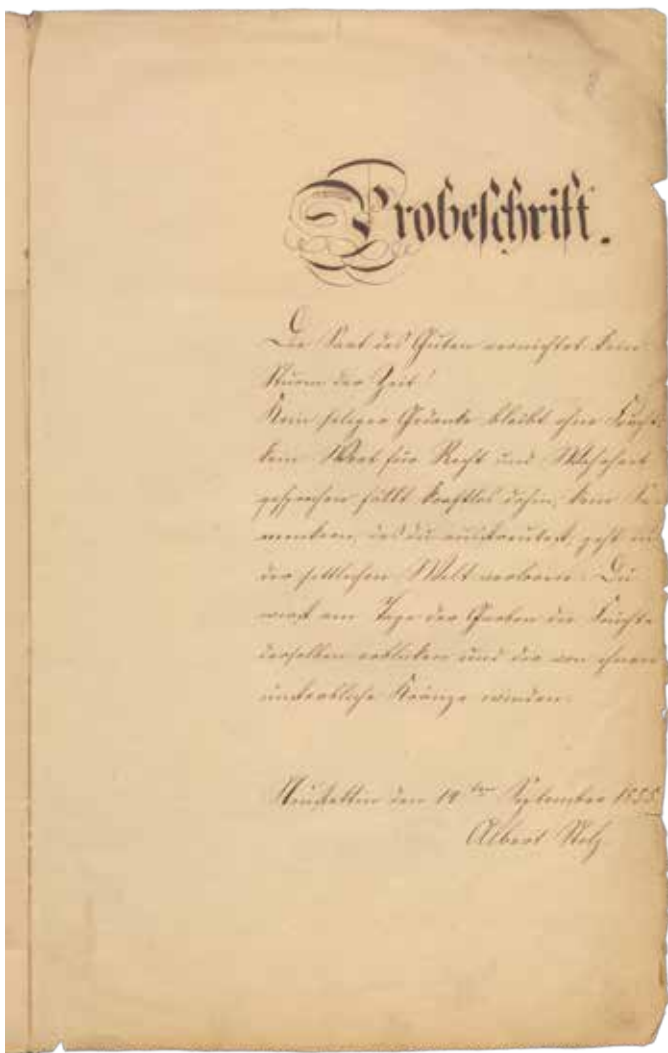 8
Probeschrift.
Die Saat des Guten vernichtet kein
Sturm der Zeit!
Kein seliger Gedanke bleibt ohne Frucht,
kein Wort für Recht und Wahrheit
gesprochen fällt kraftlos dahin, kein Sa-
menkorn, das du ausstreutest, geht in
der sittlichen Welt verloren. Du
wirst am Tage der Garben die Früchte
derselben erblicken und dir von ihnen
unsterbliche Kränze winden.
Neustettin den 19ten September 1855.
Albert